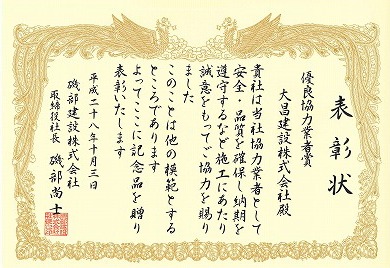 表彰状
優良協力業者賞
大昌建設株式会社殿
貴社は当社協力業者として
安全・品質を確保し納期を
遵守するなど施工にあたり
誠意をもってご協力を賜り
ました
このことは他の模範とする
ところであります
よってここに記念品を贈り
表彰いたします
平成二十八年十月三日
磯部建設株式会社
取締役社長 磯部尚士